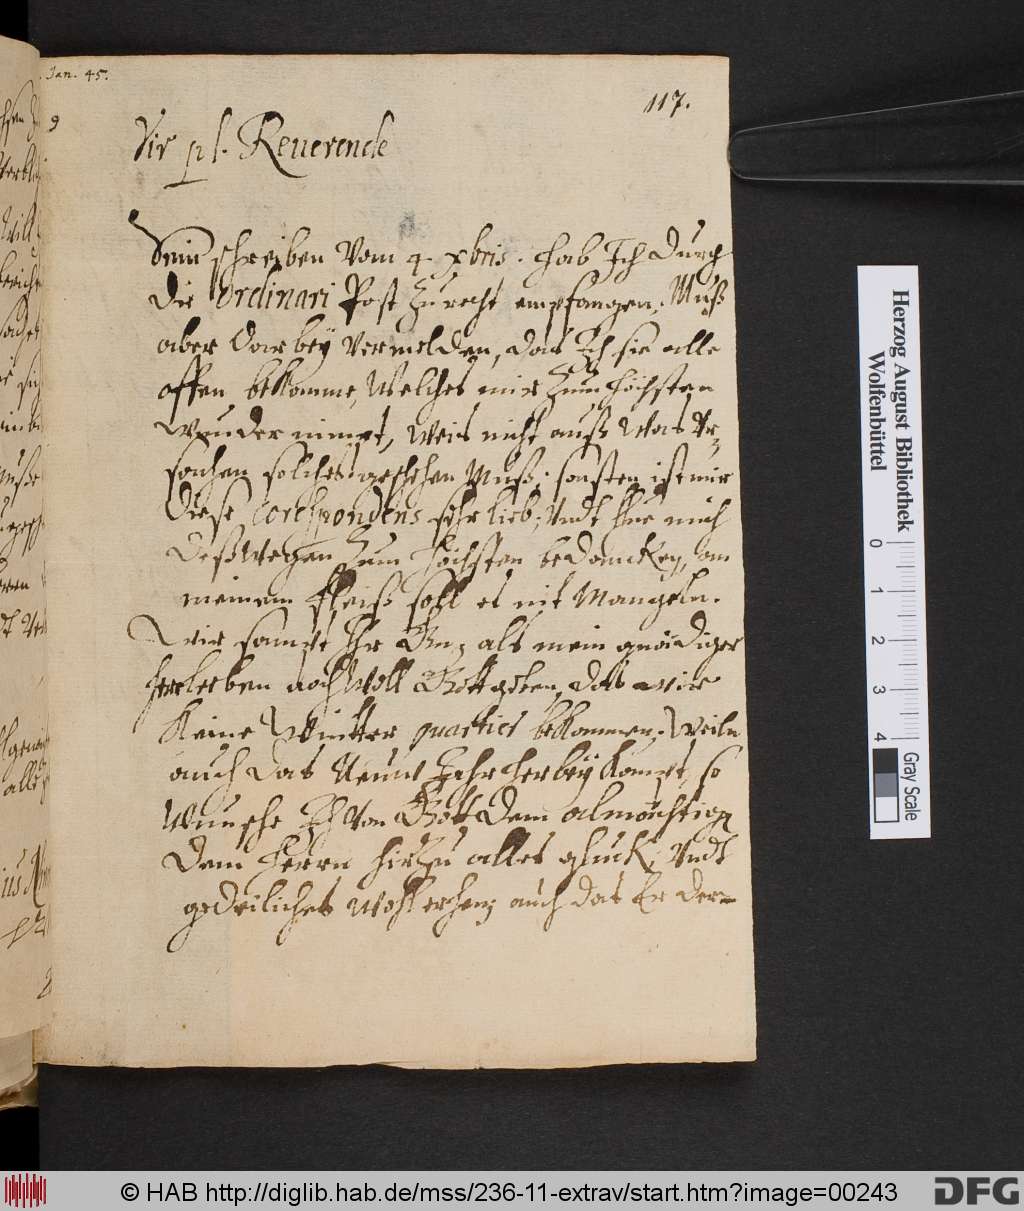 Jan. 45.
117.
Vir pl. Reuerende
Sein schreiben vom 4. xbris. hab Ich durch
die Ordinari Post zu recht empfangen. Muß
aber darbey vermelden, das Ich sie alle
offen bekomme, welches mir zum höchsten
wunder nimpt, weis nicht auß was Vr,
sachen solches geschehen muß; sonsten ist mir
diese Corespondens sehr lieb, vndt thue mich
deßwegen zum höchsten bedancken, an
meinem fleiß soll es nit mangeln.
Wir sampt Ihr Gn. als mein gnädiger
herr leben noch woll Gott geben, das wir
keine Winter quartier bekommen. Weiln
auch das Neuw Jahr herbey kompt, so
wunsche Ich von Gott dem almächtigen
dem herrn hirzu alles gluck, vndt
gedeiliches wohlergehen, auch das Er der=
Herzog August Bibliothek
Wolfenbüttel
0 1 2 3 4
Gray Scale
© HAB http://diglib.hab.de/mss/236-11-extrav/start.htm?image=00243
DFG